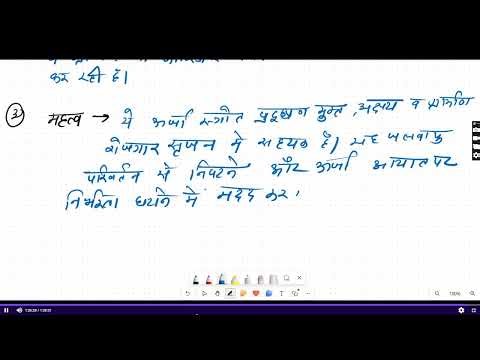 कर रही है।
③ महत्व → ये ऊर्जा स्त्रोत प्रदूषण मुक्त, अक्षय व ग्रामीण
रोजगार सृजन में सहायक है। यह जलवायु
परिवर्तन से निपटने और ऊर्जा आयात पर
निर्भरता घटाने में मदद कर